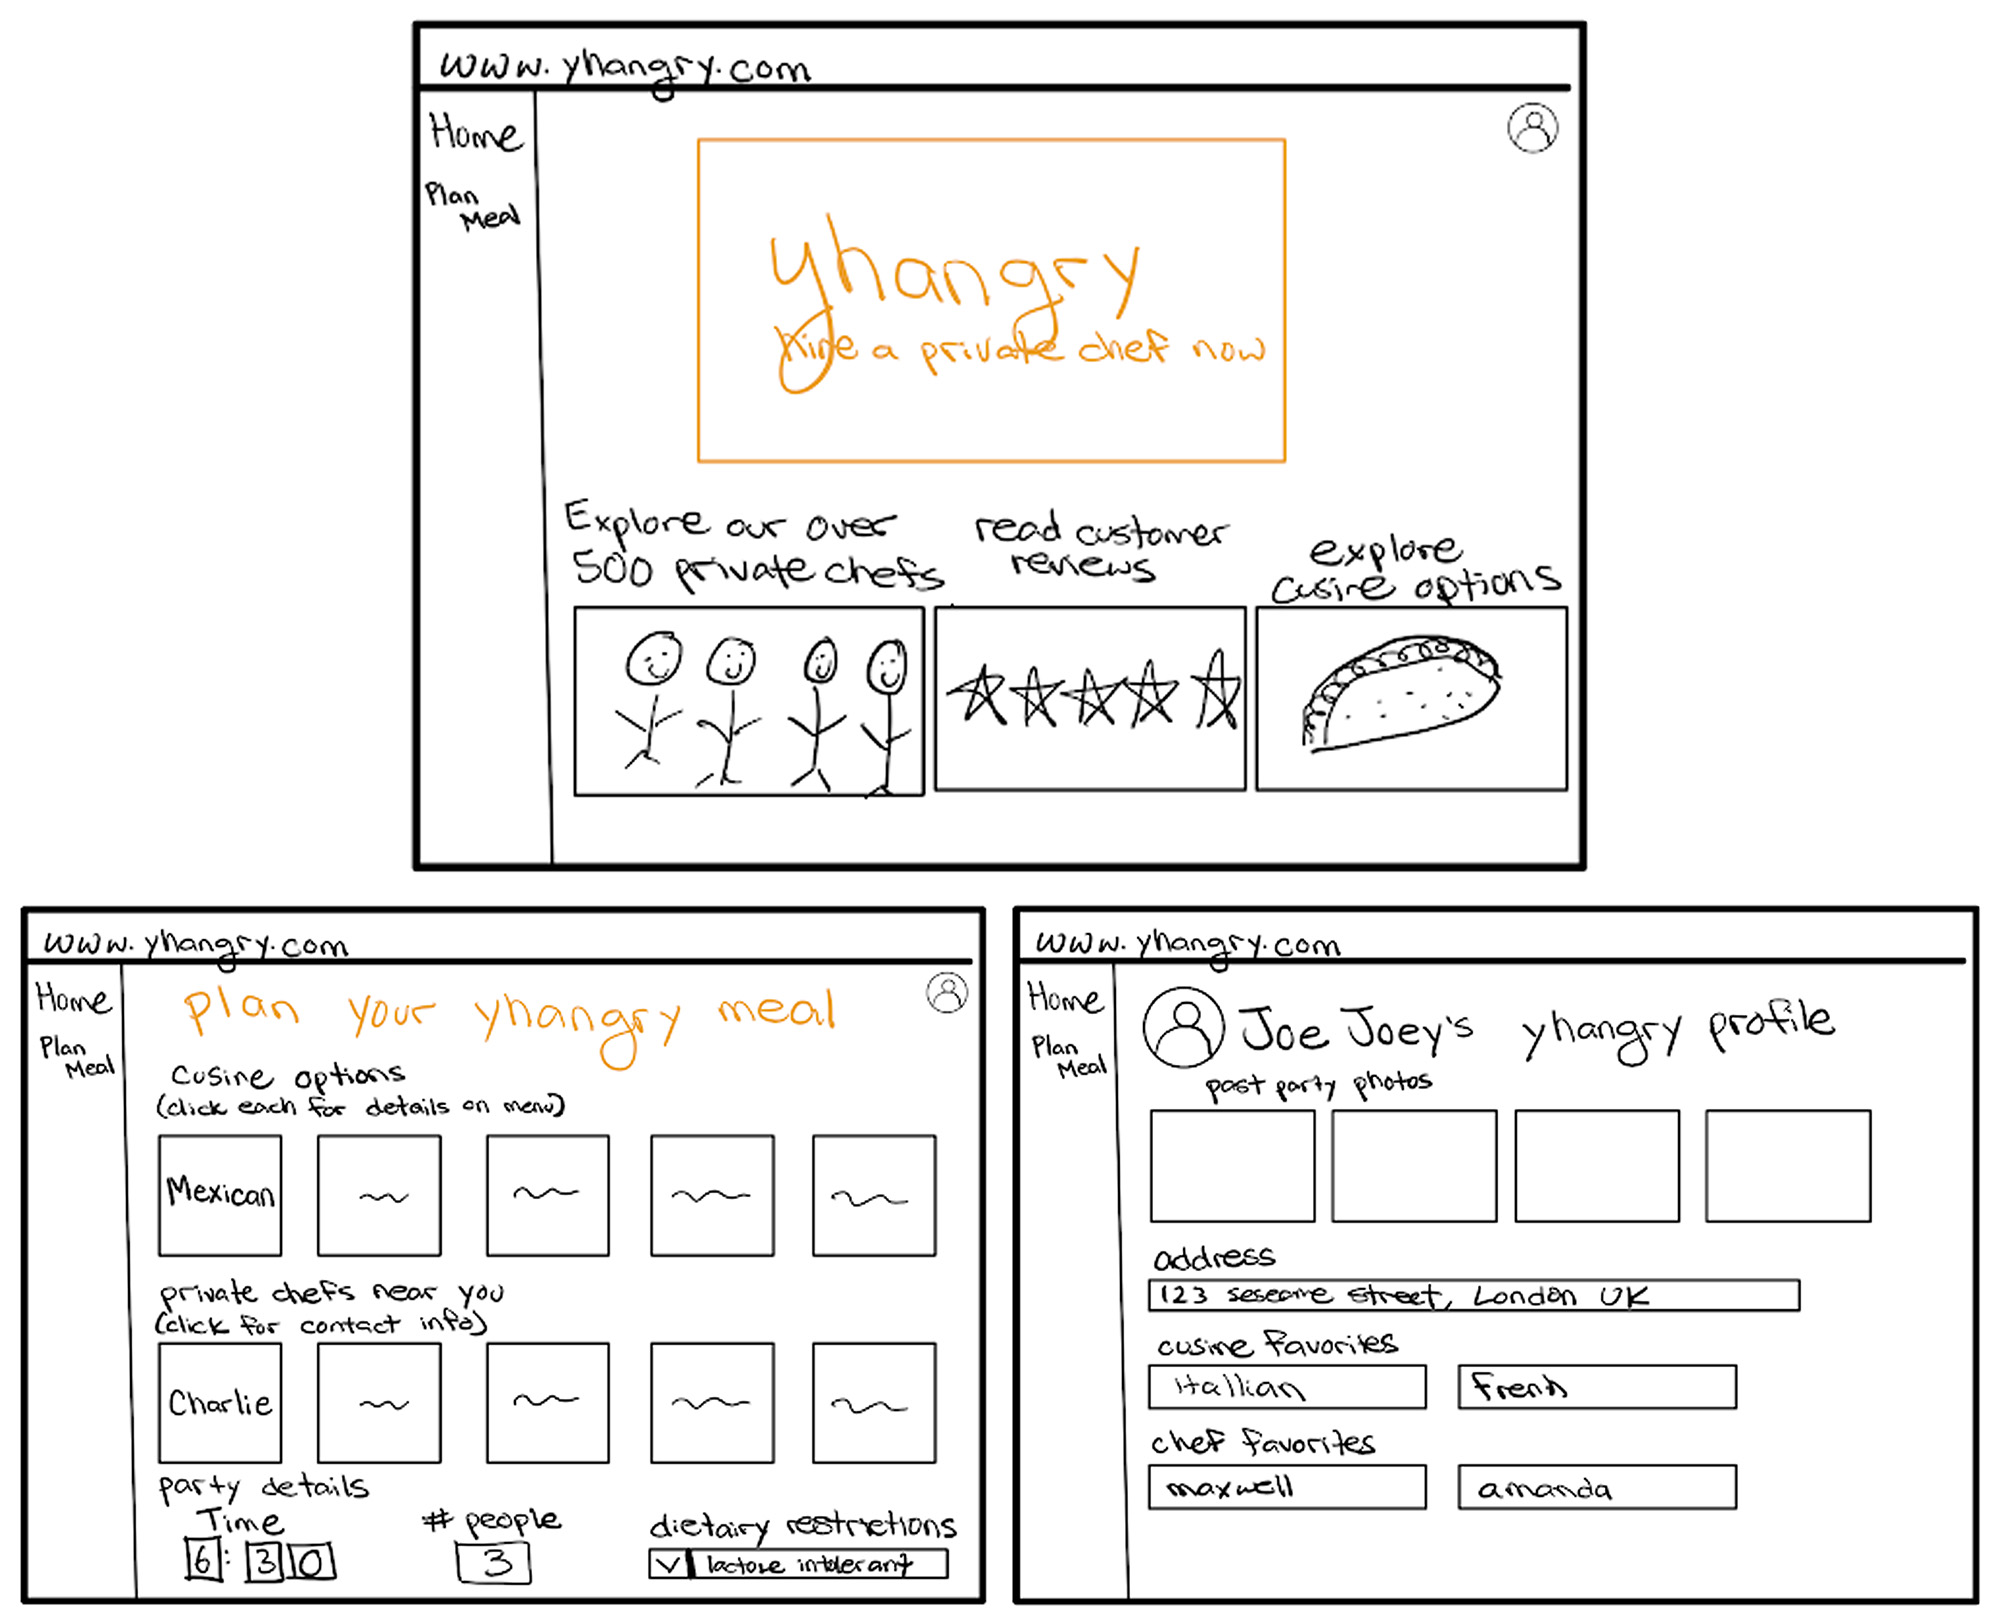 www.yhangry.com
Home
Plan
Meal
yhangry
hire a private chef now
Explore our over
500 private chefs
read customer
reviews
explore
cusine options
www.yhangry.com
Home
Plan
Meal
plan your yhangry meal
cusine options
(click each for details on menu)
Mexican
private chefs near you
(click for contact info)
Charlie
party details
Time
6:30
# people
3
dietairy restrictions
lactose intolerant
www.yhangry.com
Home
Plan
Meal
Joe Joey's yhangry profile
past party photos
address
123 seseame street, London UK
cusine favorites
itallian
frenh
chef favorites
maxwell
amanda